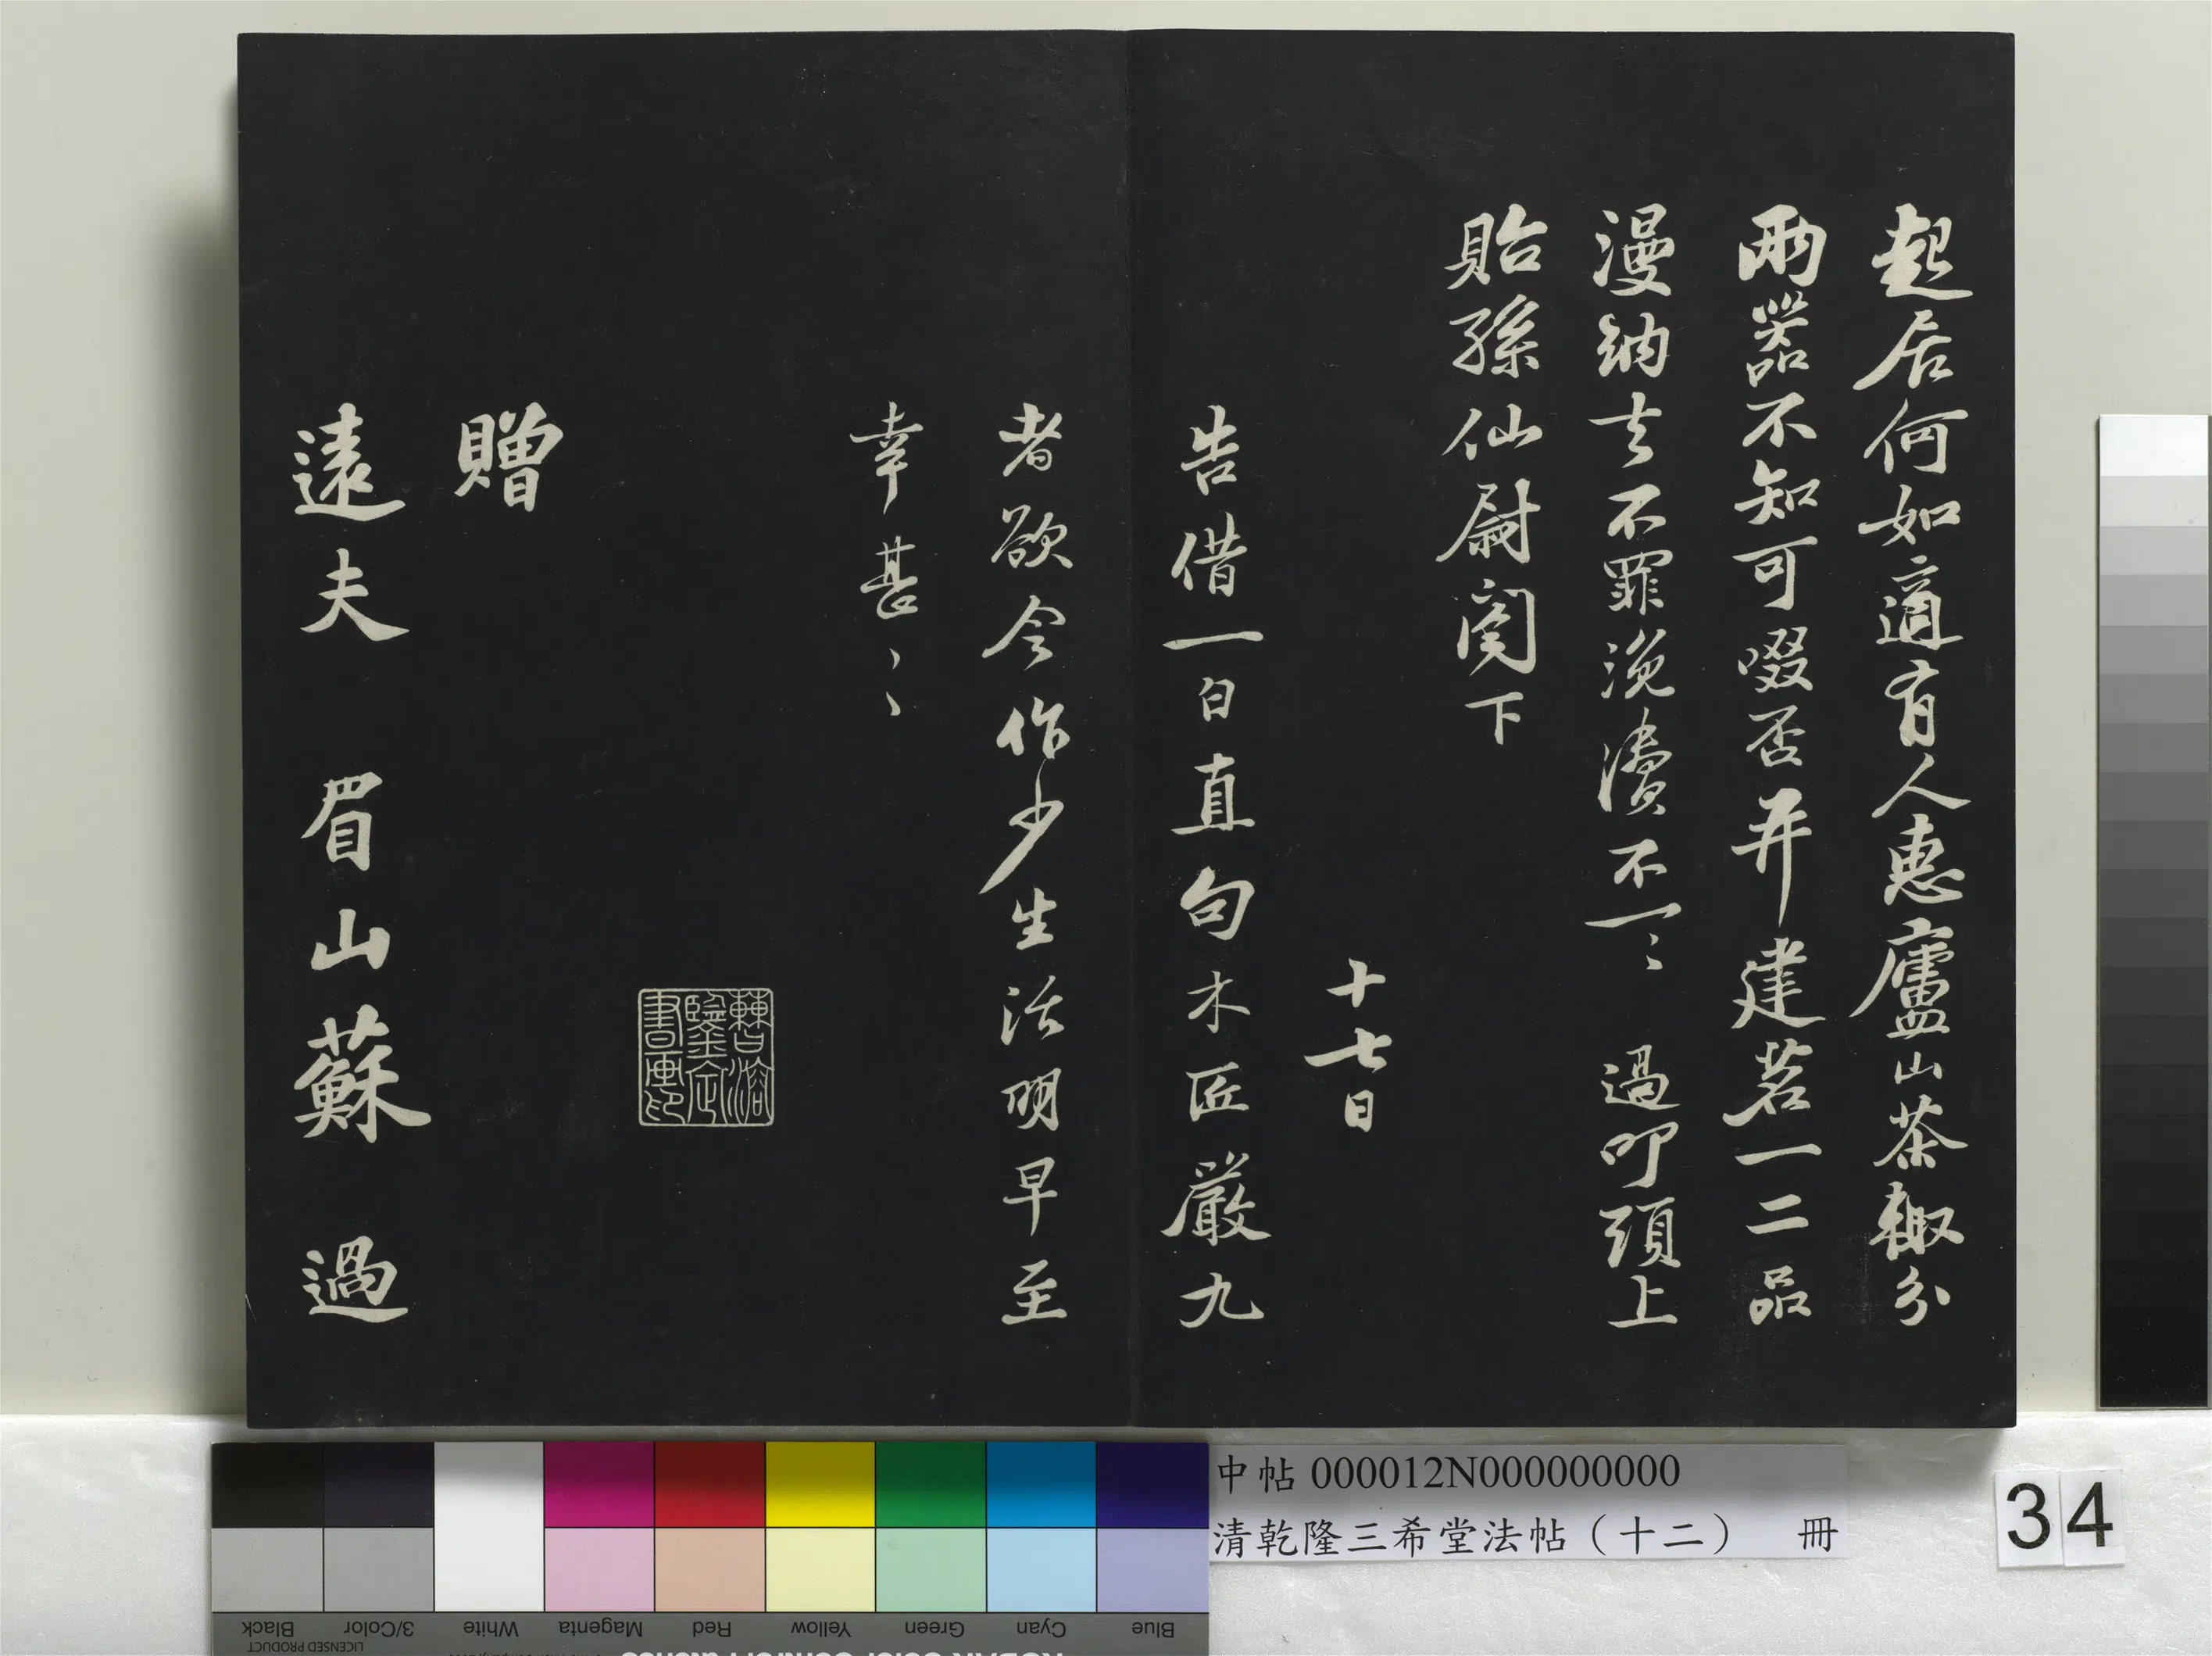 起居何如適有人惠廬山茶輙分
兩器不知可啜否并建茗一二品
漫納去不罪浼瀆不一〻 過叩頭上
貽孫仙尉閤下
十七日
告借一白直句木匠嚴九
者欲令作少生活明早至
幸甚〻〻
贈
遠夫 眉山蘇 過
鑒定
書畫印
中帖 000012N000000000
清乾隆三希堂法帖（十二） 冊
34
Blue
Cyan
Green
Yellow
Red
Magenta
White
3/Color
Black
LICENSED PRODUCT